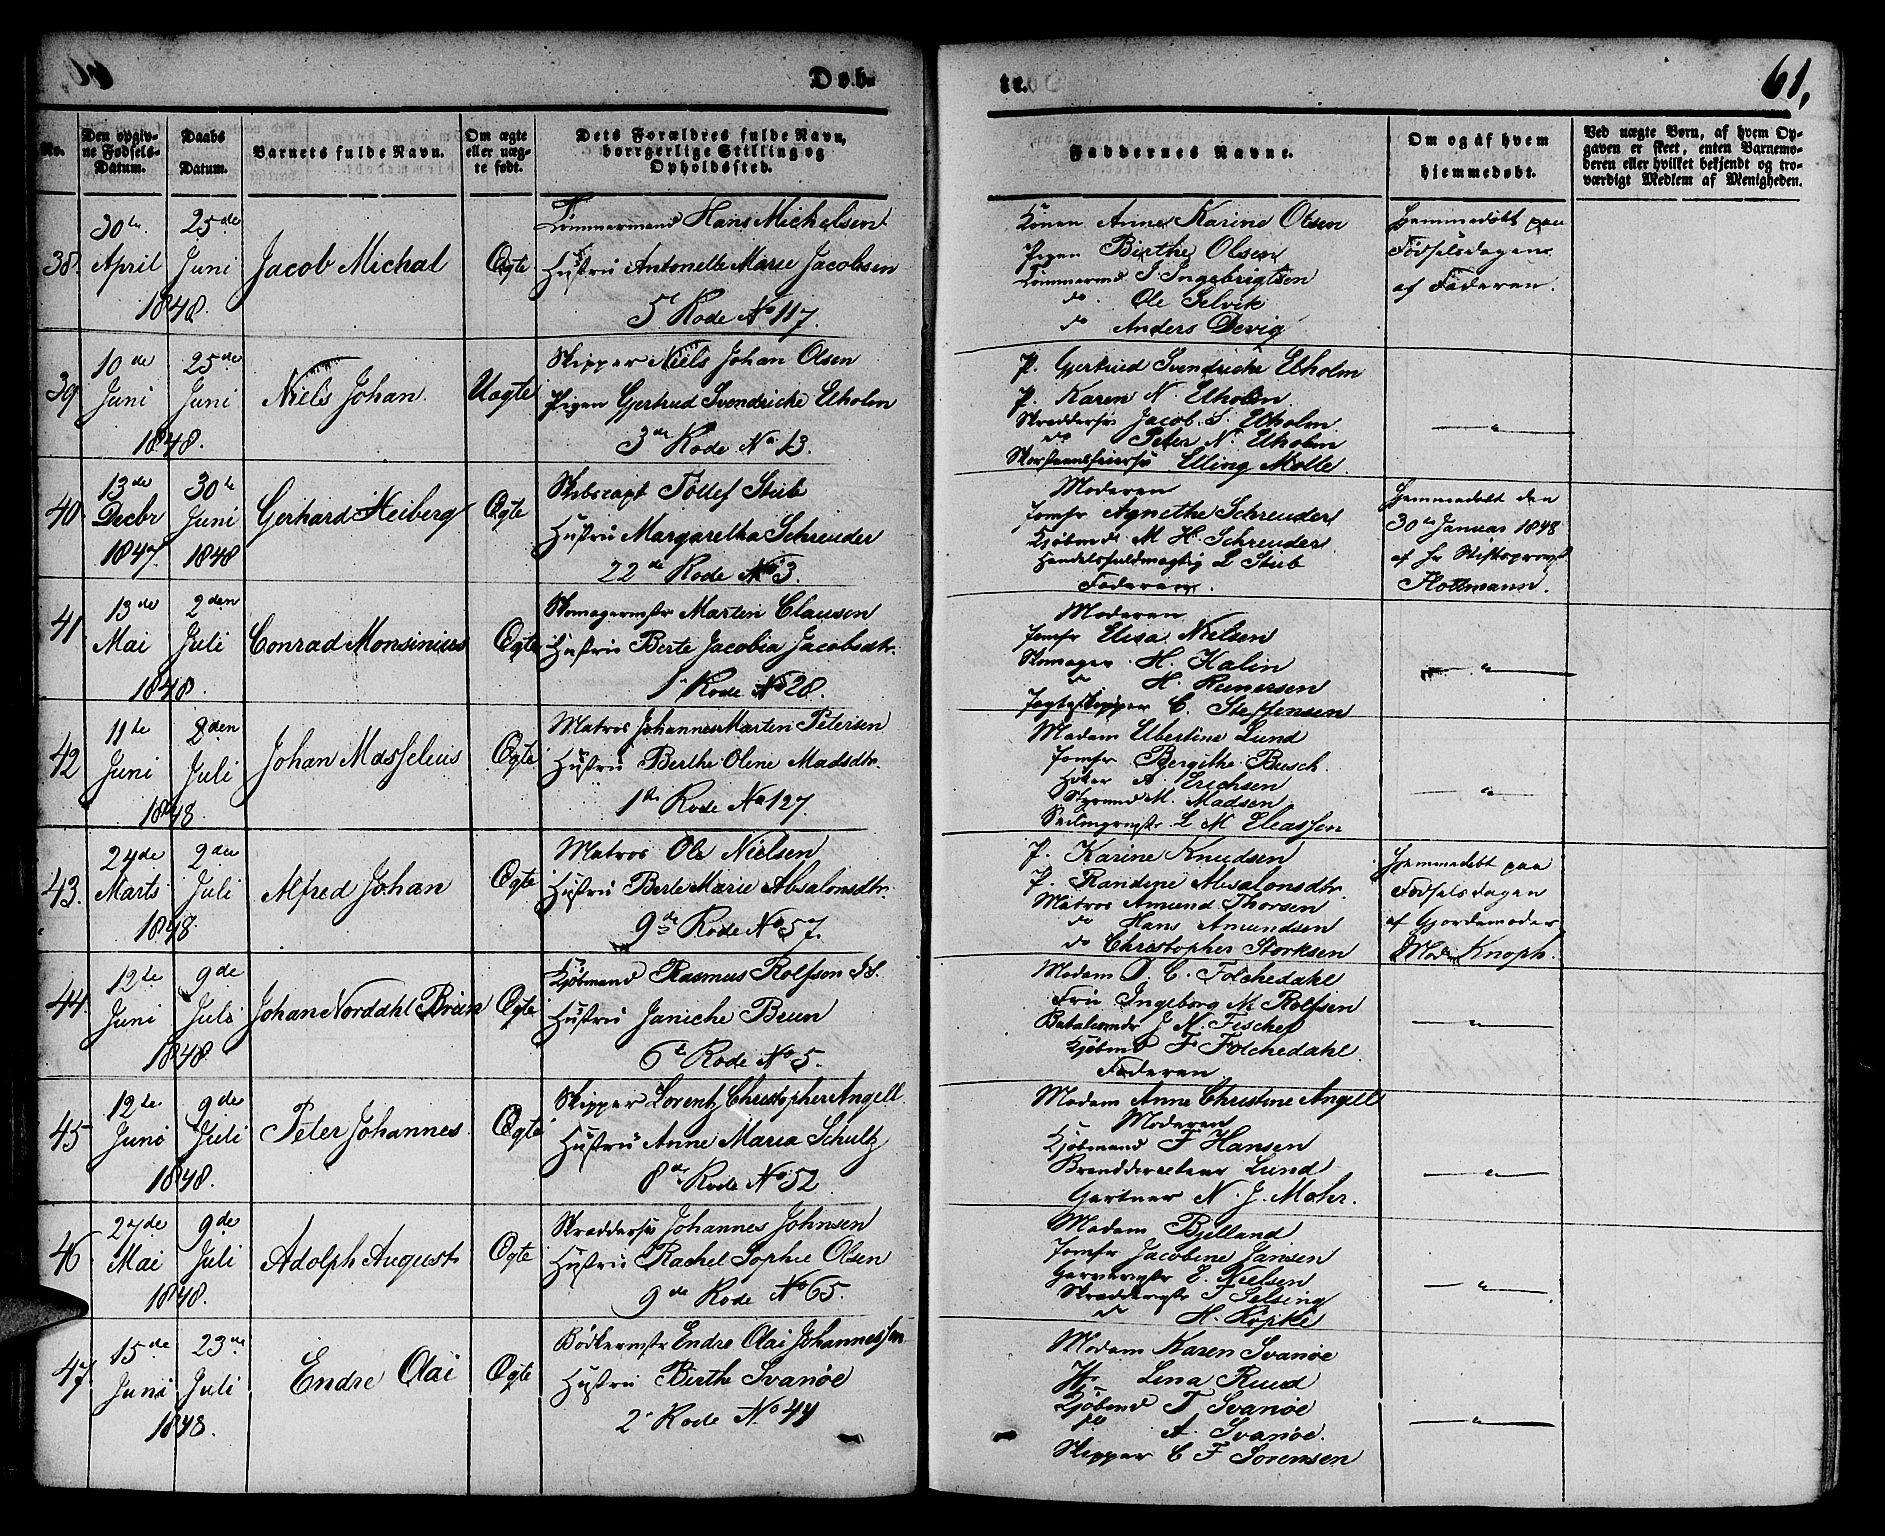 Døb-
No.
Den opgiv-
ne Fødsels-
Datum.
Daabs
Datum.
Barnets fulde Navn.
Om ægte
eller uæg-
te født.
Dets Forældres fulde Navn,
borrgerlige Stilling og
Opholdssted.
38.
30te
April
25de
Juni
1848.
Jacob Michal
Ægte
Tømmermand Hans Michelsen
Hustru Antonette Marie Jacobsen
5 Rode No 117.
39
10de
Juni
25de
Juni
1848.
Niels Johan.
Uægte
Skipper Niels Johan Olsen
Pigen Gertrud Svendricke Elholm
3de Rode No 13.
40
13de
Decbr
1847.
30te
Juni
1848
Gerhard Heiberg
Ægte
Skibscapt Tollef Stub
Hustru Margaretha Schreuder
22de Rode No 3.
41
13de
Mai
2den
Juli
1848.
Conrad Monsinius
Ægte
Skomagermstr Martin Clausen
Hustru Berte Jacobia Jacobsdtr.
1 Rode No 28.
42
11te
Juni
2den
Juli
1848.
Johan Masselius
Ægte
Matros Johannes Martin Petersen
Hustru Berthe Oline Madsdtr.
1te Rode No 127.
43.
24de
Marts
2den
Juli
1848.
Alfred Johan
Ægte
Matros Ole Nielsen
Hustru Berte Marie Absalonsdtr.
9de Rode No 57.
44.
12te
Juni
9de
Juli
1848
Johan Nordahl Brun
Ægte
Kjøbmand Rasmus Rolfsen
Hustru Janiche Brun
6te Rode No 5.
45
12te
Juni
9de
Juli
1848.
Peter Johannes.
Ægte
Skipper Lorentz Christopher Angell
Hustru Anne Maria Schultz
8de Rode No 52
46
27de
Mai
9de
Juli
1848.
Adolph August
Ægte
Skræddersv Johannes Johnsen
Hustru Rachel Sophie Olsen
9de Rode No 65.
47
15de
Juni
23de
Juli
1848.
Endre Olai
Ægte
Bødkermstr Endre Olai Johannessen
Hustru Berthe Svanøe
2 Rode No 44
te.
61,
Faddernes Navne.
Om og af hvem
hjemmedøbt.
Ved uægte Børn, af hvem Op-
gaven er skeet, enten Barnemo-
deren eller hvilket bekjendt og tro-
værdigt Medlem af Menigheden.
Konen Anne Karine Olsen
Pigen Birthe Olsen
Tømmermd J. Ingebrigtsen
do. Ole Selvik
do Anders Devig
Hjemmedøbt paa
Fødselsdagen
af Faderen.
P. Gjertrud Svendricke Elholm
P. Karen N. Elholm
Skræddersv Jacob S. Elholm
do Peter N. Elholm
Skorsteensfeiersv Elling Molle.
Moderen
Jomfr Agnethe Schreuder
Kjøbmd M H. Schreuder
Handelsfuldmægtig L Stub
Faderen.
Hjemmedøbt den
30te Januar 1848
af Hr Stiftsprovst
Moderen
Jomfr Elisa Nielsen
Skomager H. Kalin
do H. Runersen
Jagteskipper C. Steffensen
Madam Elbertine Lund
Jomfr Bergithe Busch.
Høker A. Erichsen
Styrmd M. Madsen
Seilmagrmstr. L M Eliassen
P. Karine Knudsen
P. Randine Absalonsdtr.
Matros Amund Thorsen
do Hans Amundsen
do Christopher Storksen
Hjemmedøbt paa
Fødselsdagen
af Gjordemoder
Mad Knoph.
Madam D. C. Folchedahl
Fru Ingeborg M. Rolfsen
J. N. Fischer
Kjøbmd F Folchedahl.
Faderen
Madam Anne Christine Angell
Moderen
Kjøbmand F Hansen
Lund
Gartner N. J. Mohr.
Madam Bjelland
Jomfr Jacobine Jansen
Garvermstr E. Nielsen
Skræddermstr F Selsing
do H. Røpke
Madam Karen Svanøe
Lena Ruud
Kjøbmd T Svanøe
do A. Svanøe.
Skipper C F Sorensen